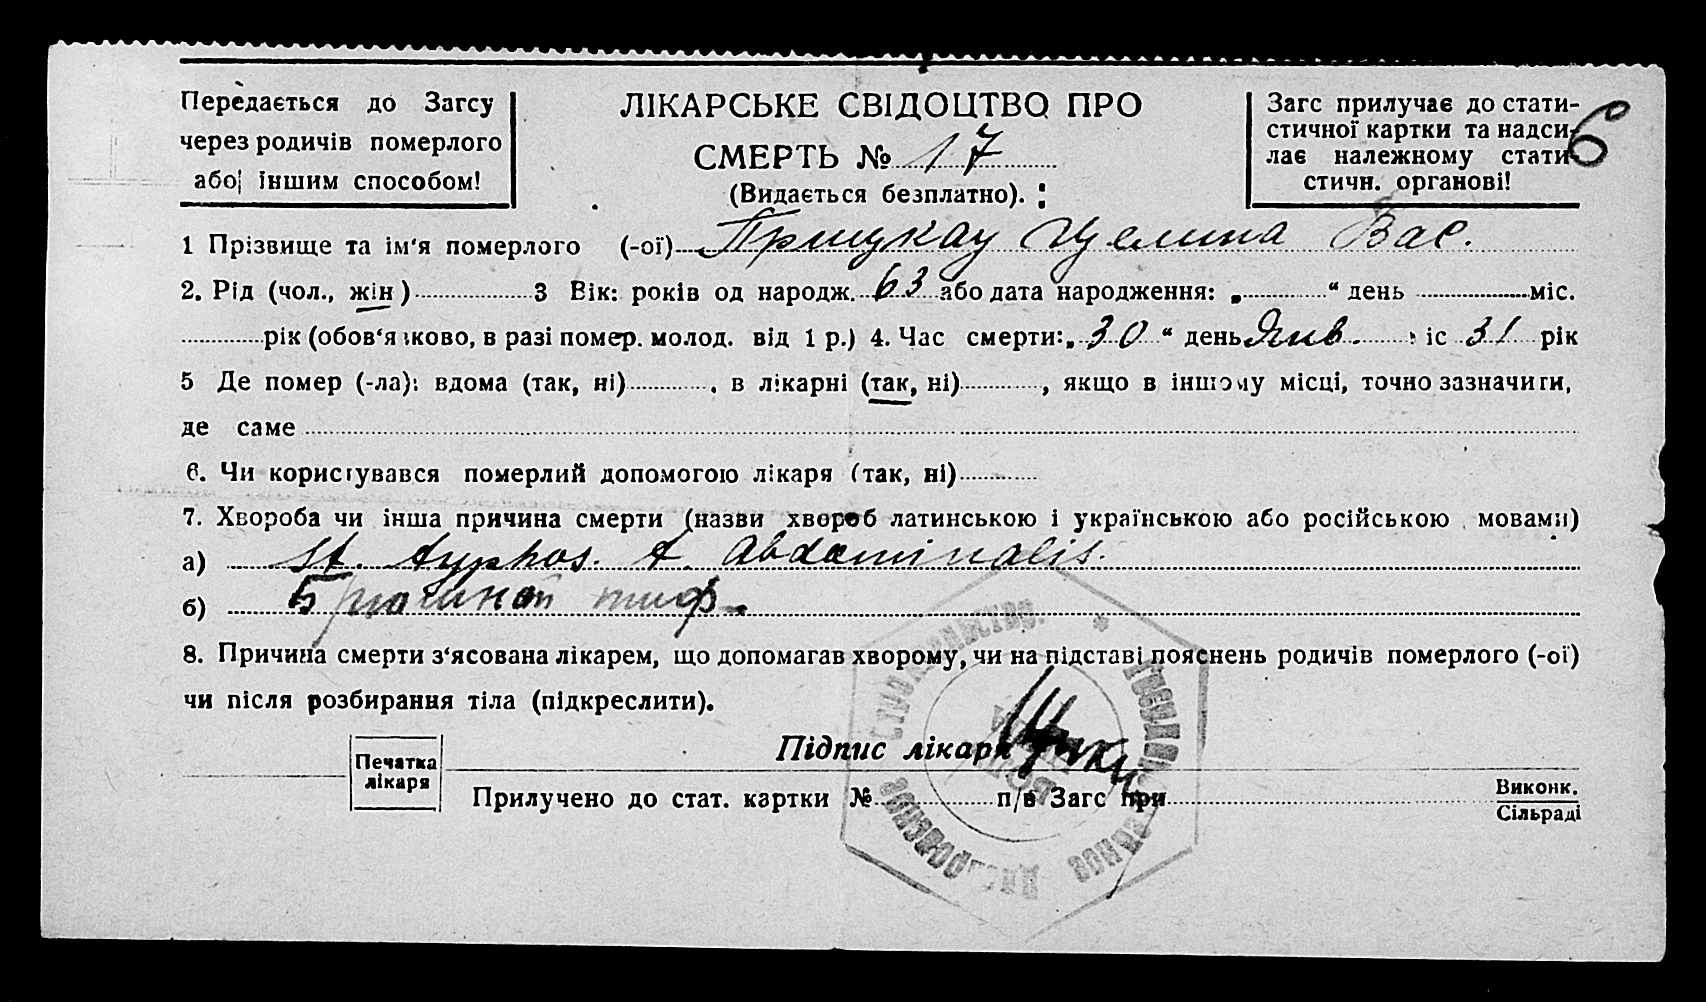 Передається до Загсу
через родичів померлого
або іншим способом!
ЛІКАРСЬКЕ СВІДОЦТВО ПРО
СМЕРТЬ № 17
(Видається безплатно).
Загс прилучає до стати-
стичної картки та надси-
лає належному стати-
стичн. органові!
6
1 Прізвище та ім'я померлого (-ої) Вас.
2. Рід (чол., жін) 3 Вік: років од народж. 63 або дата народження: „ “ день міс.
рік (обов'язково, в разі помер. молод. від 1 р.) 4. Час смерти: „ 30 “ день Янв. міс 31 рік
5 Де помер (-ла): вдома (так, ні) , в лікарні (так, ні) , якщо в іншому місці, точно зазначити,
де саме
6. Чи користувався померлий допомогою лікаря (так, ні)
7. Хвороба чи інша причина смерти (назви хвороб латинською і українською або російською мовами)
а) St. typhos. t. Abdominalis.
б) Брюшной тиф
8. Причина смерти з'ясована лікарем, що допомагав хворому, чи на підставі пояснень родичів померлого (-ої)
чи після розбирання тіла (підкреслити).
Печатка
лікаря
Підпис лікаря
Прилучено до стат. картки № п/в Загс при
Виконк.
Сільраді